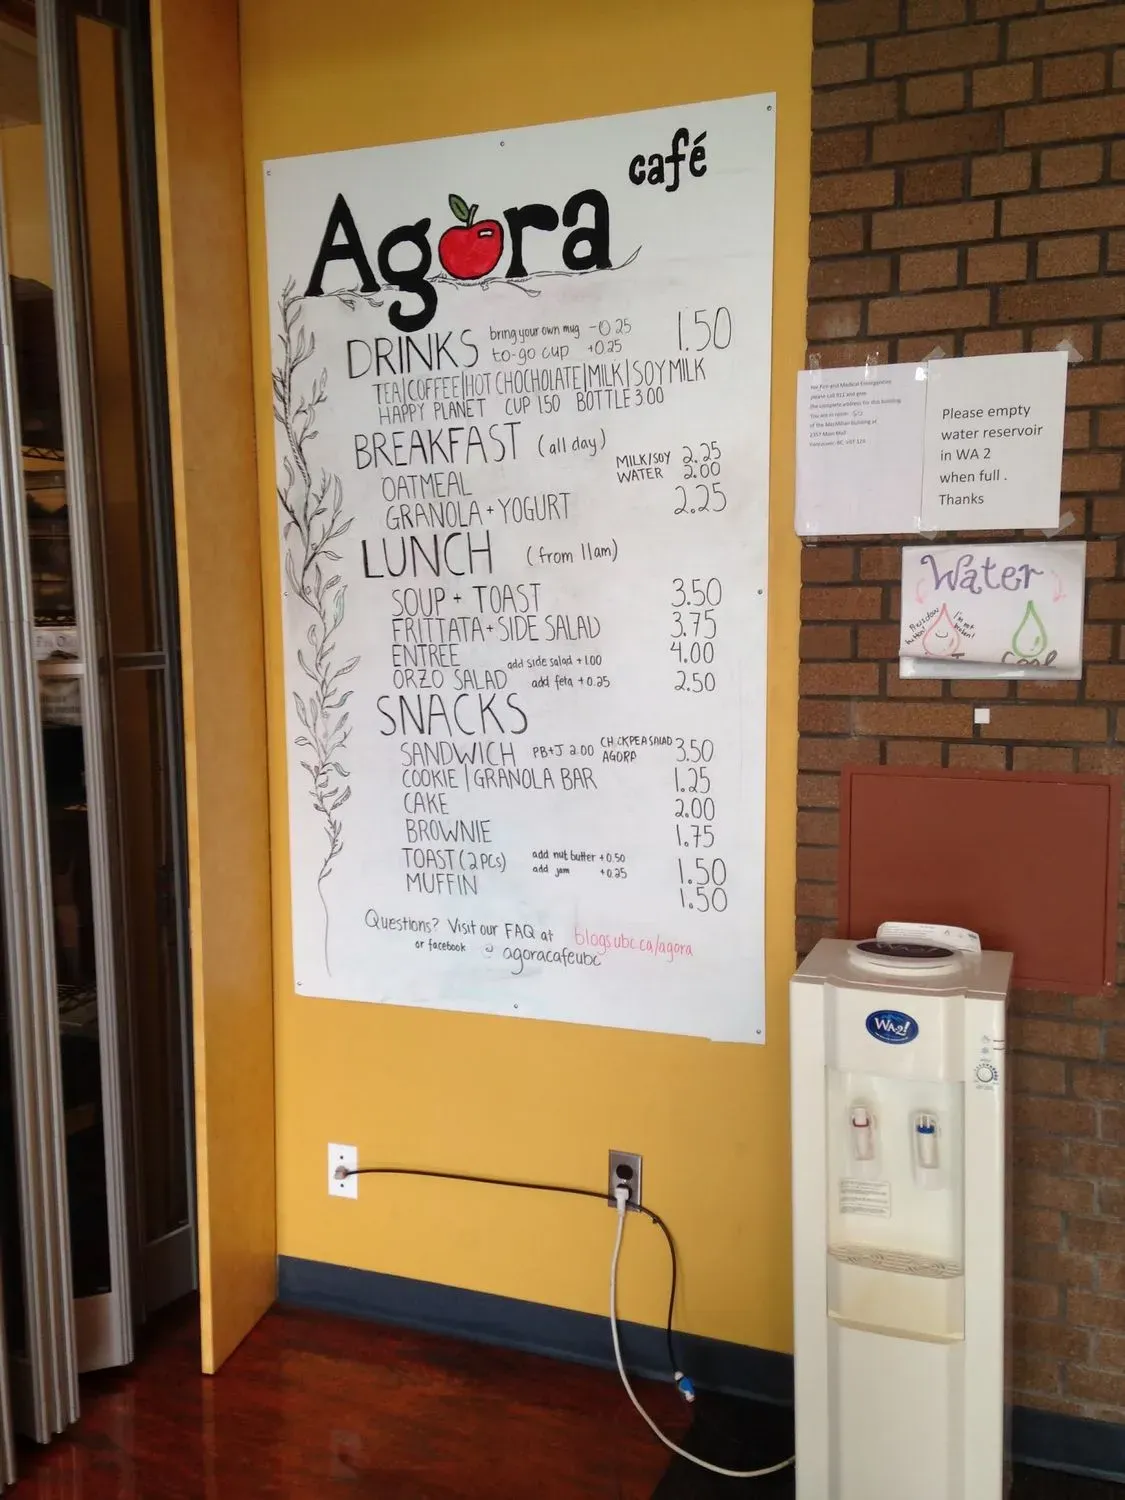 café
Agora
DRINKS bring your own mug -0.25 1.50
to-go cup +0.25
TEA|COFFEE|HOT CHOCHOLATE|MILK|SOY MILK
HAPPY PLANET CUP 1.50 BOTTLE 3.00
BREAKFAST (all day)
OATMEAL MILK/SOY 2.25
WATER 2.00
GRANOLA + YOGURT 2.25
LUNCH (from 11am)
SOUP + TOAST 3.50
FRITTATA + SIDE SALAD 3.75
ENTREE add side salad +1.00 4.00
ORZO SALAD add feta +0.25 2.50
SNACKS
SANDWICH PB+J 2.00 CHICKPEA SALAD 3.50
AGORA
COOKIE | GRANOLA BAR 1.25
CAKE 2.00
BROWNIE 1.75
TOAST (2 PCs) add nut butter +0.50 1.50
add jam +0.25
MUFFIN 1.50
Questions? Visit our FAQ at blogs.ubc.ca/agora
or facebook @ agoracafeubc
For Fire and Medical Emergencies
please call 911 and give
the complete address for this building.
You are in room
of the MacMillan Building at
2357 Main Mall
Vancouver, BC, V6T 1Z4
Please empty
water reservoir
in WA 2
when full .
Thanks
Water
Press down
button!
I'm not
broken!
Cool
WA-2!